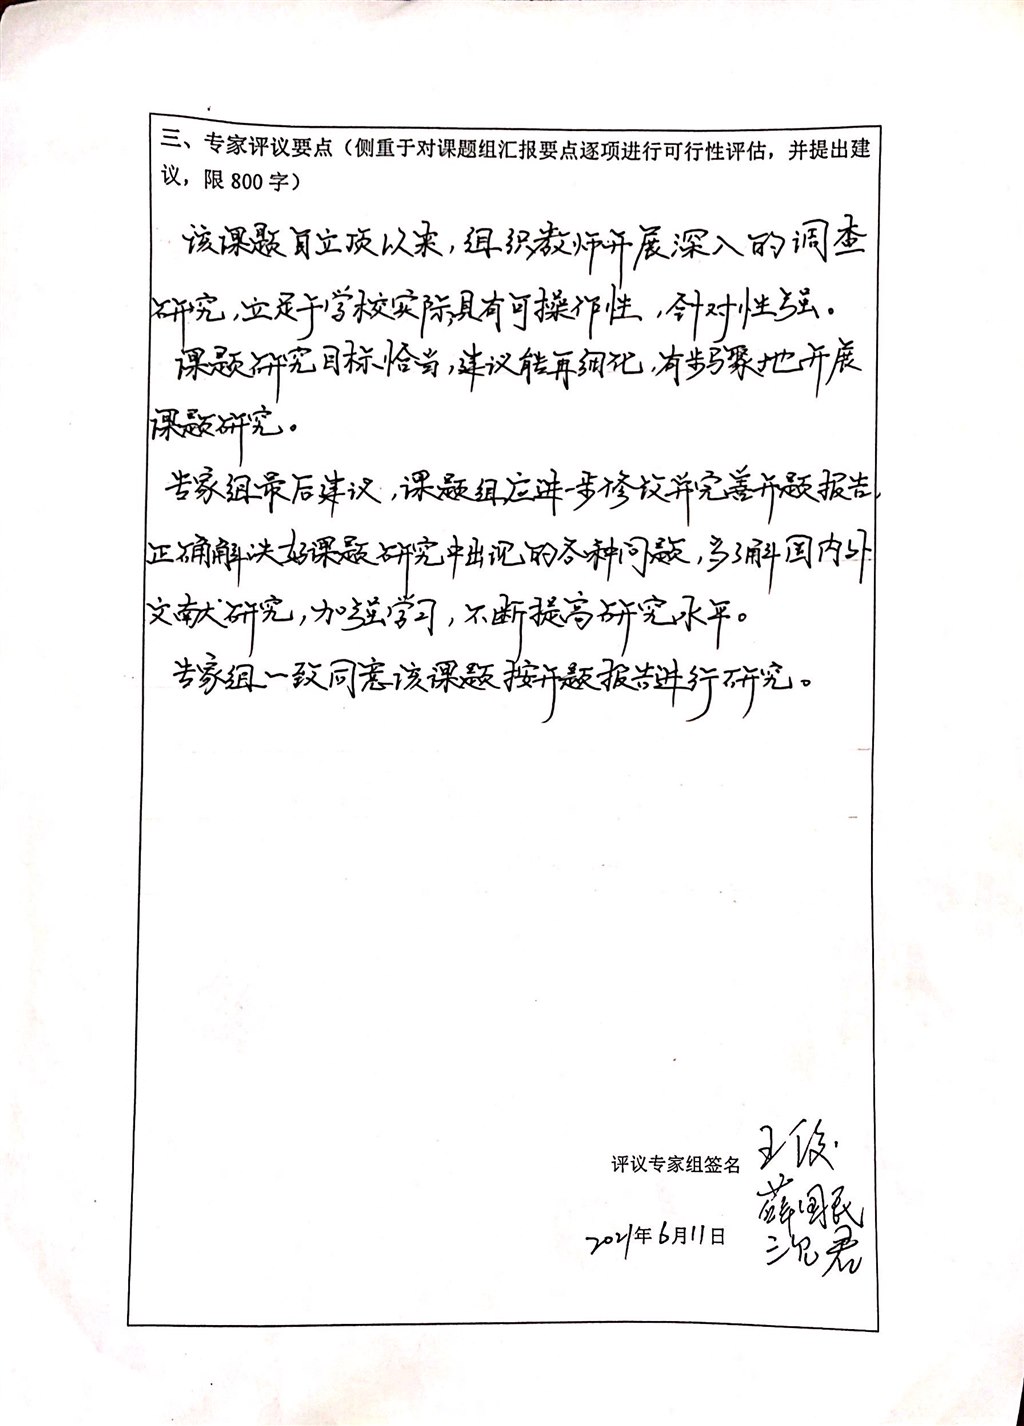 三、专家评议要点（侧重于对课题组汇报要点逐项进行可行性评估，并提出建
议，限 800 字）
该课题自立项以来，组织教师开展深入的调查
研究，立足于学校实际，具有可操作性，针对性强。
课题研究目标恰当，建议能再细化，有步骤地开展
课题研究。
专家组最后建议，课题组应进一步修改并完善开题报告，
正确解决好课题研究中出现的各种问题，多了解国内外
文献研究，加强学习，不断提高研究水平。
专家组一致同意该课题按开题报告进行研究。
评议专家组签名 王俊
薛国民
2021年6月11日
君